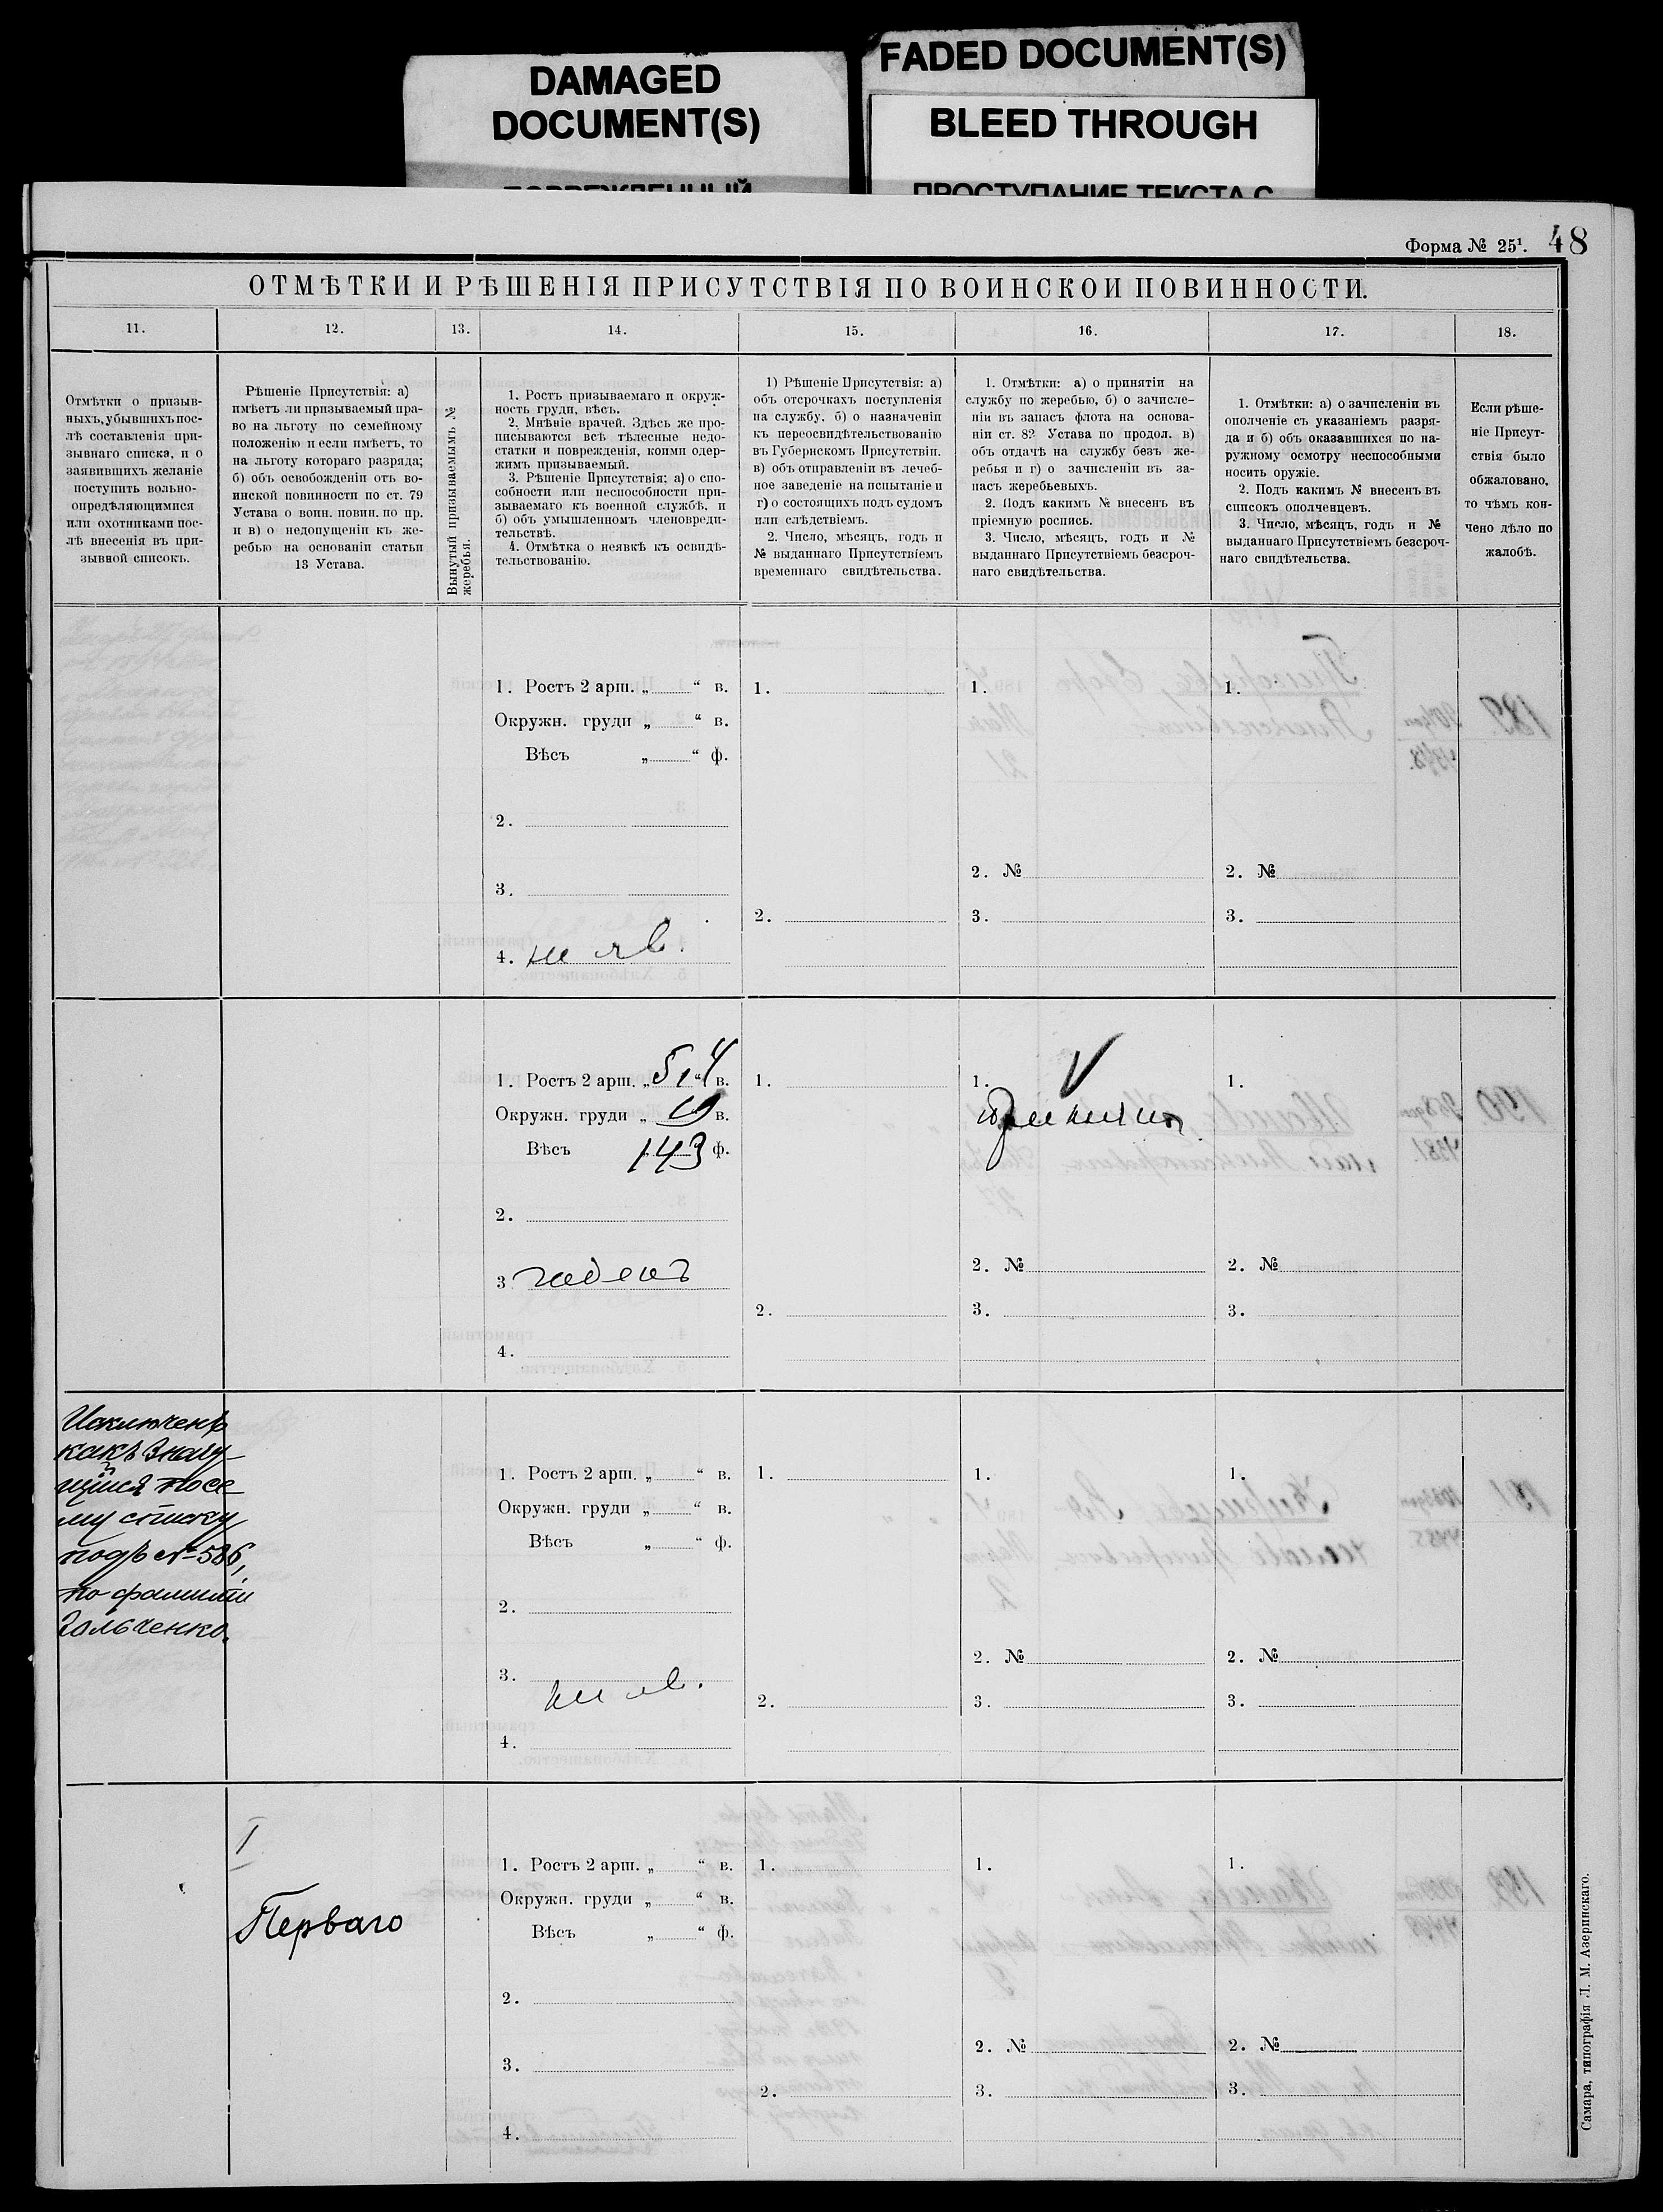 DAMAGED
DOCUMENT(S)
FADED DOCUMENT(S)
BLEED THROUGH
Форма № 25¹. 48
ОТМѢТКИ И РѢШЕНІЯ ПРИСУТСТВІЯ ПО ВОИНСКОЙ ПОВИННОСТИ.
11. 12. 13. 14. 15. 16. 17. 18.
Отмѣтки о призыв-
ныхъ, убывшихъ пос-
лѣ составленія при-
зывнаго списка, и о
заявившихъ желаніе
поступить вольно-
опредѣляющимися
или охотниками пос-
лѣ внесенія въ при-
зывной списокъ.
Рѣшеніе Присутствія: а)
имѣетъ ли призываемый пра-
во на льготу по семейному
положенію и если имѣетъ, то
на льготу котораго разряда;
б) объ освобожденіи отъ во-
инской повинности по ст. 79
Устава о воин. повин. по пр.
и в) о недопущеніи къ же-
ребью на основаніи статьи
13 Устава.
Вынутый призываемымъ №
жеребья.
1. Ростъ призываемаго и окруж-
ность груди, вѣсъ.
2. Мнѣніе врачей. Здѣсь же про-
писываются всѣ тѣлесные недо-
статки и поврежденія, коими одер-
жимъ призываемый.
3. Рѣшеніе Присутствія: а) о спо-
собности или неспособности при-
зываемаго къ военной службѣ, и
б) объ умышленномъ членовреди-
тельствѣ.
4. Отмѣтка о неявкѣ къ освидѣ-
тельствованію.
1) Рѣшеніе Присутствія: а)
объ отсрочкахъ поступленія
на службу, б) о назначеніи
къ переосвидѣтельствованію
въ Губернскомъ Присутствіи.
в) объ отправленіи въ лечеб-
ное заведеніе на испытаніе и
г) о состоящихъ подъ судомъ
или слѣдствіемъ.
2. Число, мѣсяцъ, годъ и
№ выданнаго Присутствіемъ
временнаго свидѣтельства.
1. Отмѣтки: а) о принятіи на
службу по жеребью, б) о зачисле-
ніи въ запасъ флота на основа-
ніи ст. 82 Устава по продол. в)
объ отдачѣ на службу безъ же-
ребья и г) о зачисленіи въ за-
пасъ жеребьевыхъ.
2. Подъ какимъ № внесенъ въ
пріемную роспись.
3. Число, мѣсяцъ, годъ и №
выданнаго Присутствіемъ безсроч-
наго свидѣтельства.
1. Отмѣтки: а) о зачисленіи въ
ополченіе съ указаніемъ разря-
да и б) объ оказавшихся по на-
ружному осмотру неспособными
носить оружіе.
2. Подъ какимъ № внесенъ въ
списокъ ополченцевъ.
3. Число, мѣсяцъ, годъ и №
выданнаго Присутствіемъ безсроч-
наго свидѣтельства.
Если рѣше-
ніе Присут-
ствія было
обжаловано,
то чѣмъ кон-
чено дѣло по
жалобѣ.
1. Ростъ 2 арш. „ “ в. 1. 1. 1.
Окружн. груди „ “ в.
Вѣсъ „ “ ф.
2.
2. № 2. №
3.
2. 3. 3.
4. не яв.
1. Ростъ 2 арш. „ 5 1/4 “ в. 1. 1. V 1.
Окружн. груди „ в.
Вѣсъ 143 ф.
2.
2. № 2. №
3 годенъ
2. 3. 3.
4.
Исключенъ
какъ знач-
ущійся по се-
му списку
подъ № 586,
по фамиліи
Гольченко.
1. Ростъ 2 арш. „ “ в. 1. 1. 1.
Окружн. груди „ “ в.
Вѣсъ „ “ ф.
2.
2. № 2. №
3. не яв.
2. 3. 3.
4.
I
Перваго
1. Ростъ 2 арш. „ “ в. 1. 1. 1.
Окружн. груди „ “ в.
Вѣсъ „ “ ф.
2.
2. № 2. №
3.
2. 3. 3.
4.
Самара, типографія Л. М. Азеринскаго.